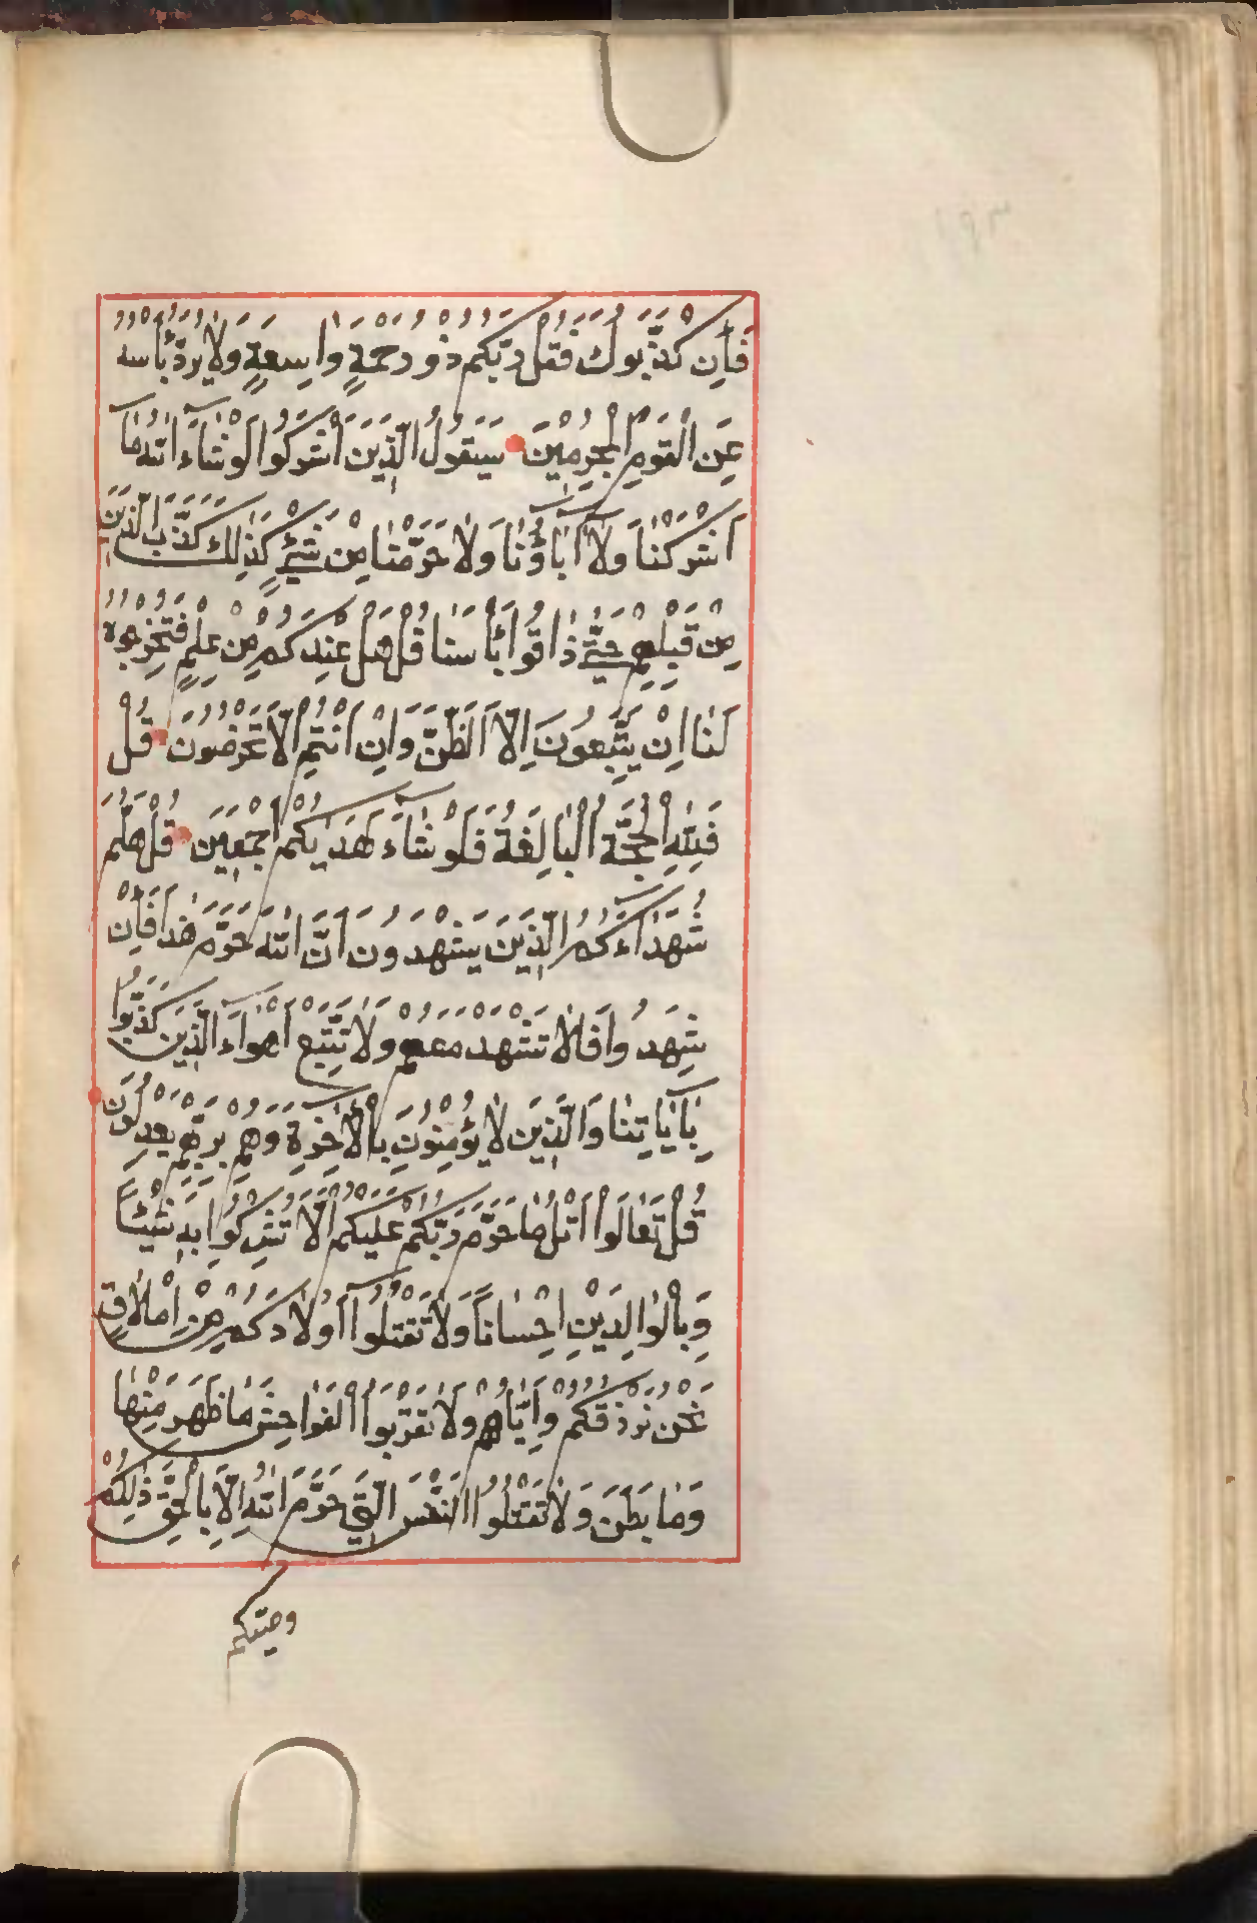 فَاِنْ كَذَّبُوكَ فَقُلْ رَبُّكُمْ ذُو رَحْمَةٍ وَاسِعَةٍ وَلَا يُرَدُّ بَأْسُهُ
عَنِ الْقَوْمِ الْمُجْرِمِيْنَ سَيَقُولُ الَّذِيْنَ اَشْرَكُوا لَوْ شَاءَ اللّٰهُ مَا
اَشْرَكْنَا وَلَا آبَاؤُنَا وَلَا حَرَّمْنَا مِنْ شَيْءٍ كَذٰلِكَ كَذَّبَ الَّذِيْنَ
مِنْ قَبْلِهِمْ حَتّٰى ذَاقُوا بَأْسَنَا قُلْ هَلْ عِنْدَكُمْ مِنْ عِلْمٍ فَتُخْرِجُوهُ
لَنَا اِنْ يَتَّبِعُونَ اِلَّا الظَّنَّ وَاِنْ اَنْتُمْ اِلَّا تَخْرُصُونَ قُلْ
فَلِلّٰهِ الْحُجَّةُ الْبَالِغَةُ فَلَوْ شَاءَ لَهَدٰيكُمْ اَجْمَعِيْنَ قُلْ هَلُمَّ
شُهَدَاءَكُمُ الَّذِيْنَ يَشْهَدُونَ اَنَّ اللّٰهَ حَرَّمَ هٰذَا فَاِنْ
شَهِدُوا فَلَا تَشْهَدْ مَعَهُمْ وَلَا تَتَّبِعْ اَهْوَاءَ الَّذِيْنَ كَذَّبُوا
بِاٰيَاتِنَا وَالَّذِيْنَ لَا يُؤْمِنُونَ بِالْاٰخِرَةِ وَهُمْ بِرَبِّهِمْ يَعْدِلُونَ
قُلْ تَعَالَوْا اَتْلُ مَا حَرَّمَ رَبُّكُمْ عَلَيْكُمْ اَلَّا تُشْرِكُوا بِهِ شَيْئًا
وَبِالْوَالِدَيْنِ اِحْسَانًا وَلَا تَقْتُلُوا اَوْلَادَكُمْ مِنْ اِمْلَاقٍ
نَحْنُ نَرْزُقُكُمْ وَاِيَّاهُمْ وَلَا تَقْرَبُوا الْفَوَاحِشَ مَا ظَهَرَ مِنْهَا
وَمَا بَطَنَ وَلَا تَقْتُلُوا النَّفْسَ الَّتِي حَرَّمَ اللّٰهُ اِلَّا بِالْحَقِّ ذٰلِكُمْ
وصّيكم